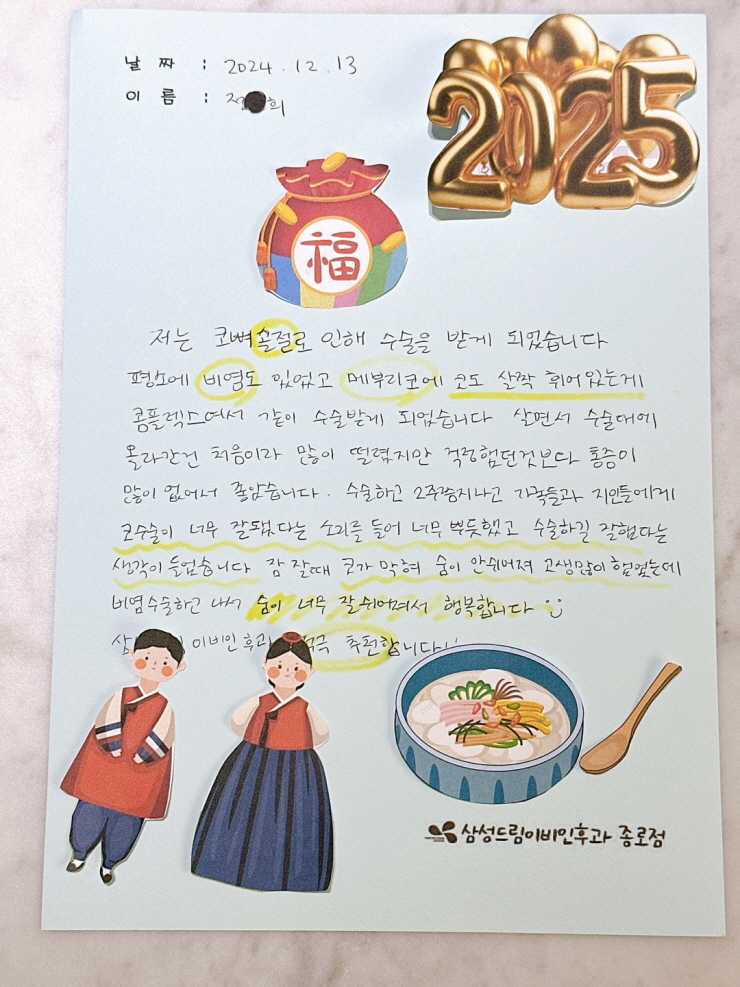 날 짜 : 2024. 12. 13
이 름 : 정 희
2025
福
저는 코뼈골절로 인해 수술을 받게 되었습니다
평소에 비염도 있었고 메부리코에 코도 살짝 휘어있는게
콤플렉스여서 같이 수술받게 되었습니다 살면서 수술대에
올라간건 처음이라 많이 떨렸지만 걱정했던것보다 통증이
많이 없어서 좋았습니다. 수술하고 2주쯤지나고 가족들과 지인들에게
코수술이 너무 잘됐다는 소리를 들어 너무 뿌듯했고 수술하길 잘했다는
생각이 들었습니다 잠 잘때 코가 막혀 숨이 안쉬어져 고생많이 했었는데
비염수술하고 나서 숨이 너무 잘쉬어져서 행복합니다 :)
삼 이비인후과 적극 추천합니다!!
삼성드림이비인후과 종로점